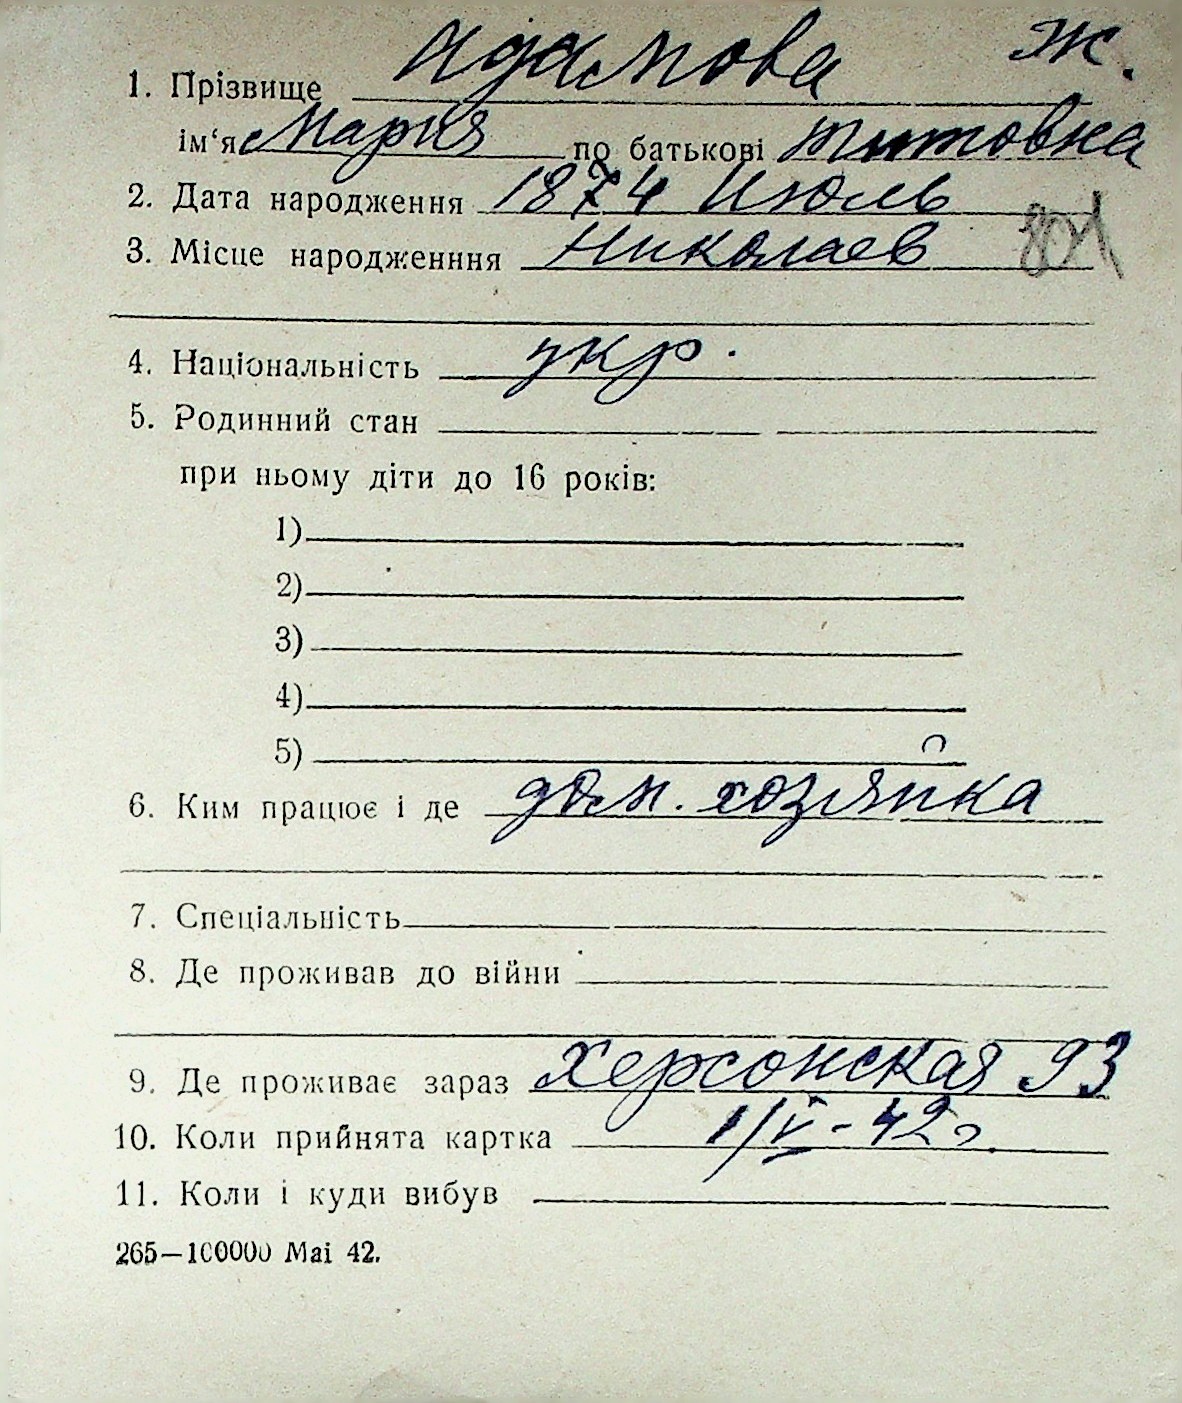 Ж.
1. Прізвище Адамова
ім'я Мария по батькові Титовна
2. Дата народження 1874 Июль
801
3. Місце народженння Николаев
4. Національність укр.
5. Родинний стан
при ньому діти до 16 років:
1)
2)
3)
4)
5)
6. Ким працює і де дом. хозяйка
7. Спеціальність
8. Де проживав до війни
9. Де проживає зараз Херсонская 93
10. Коли прийнята картка 1/V - 42 г.
11. Коли і куди вибув
265—100000 Mai 42.